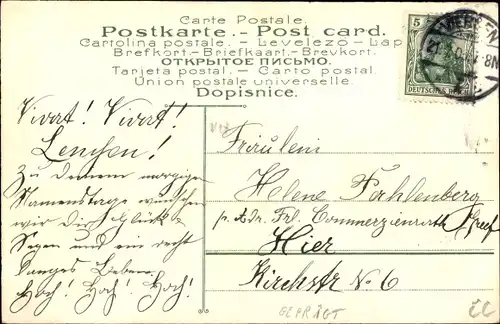 Carte Postale.
Postkarte. - Post card.
Cartolina postale. - Levelező-Lap
Brefkort-Briefkaart.-Brevkort.
ОТКРЫТОЕ ПИСЬМО.
Tarjeta postal. - Carto postal.
Union postale universelle.
Dopisnice.
5
DEUTSCHES REICH
Vivat! Vivat!
Lenchen!
Zu Deinem morgigen
Namenstage wünschen
wir Dir Glück u
Segen und ein recht
langes Leben.
Hoch! Hoch! Hoch!
Fräulein
Helene Fahlenberg
p. Adr. Frl. Commerzienrath Greef
Hier
Kirchstr No 6
GEPRÄGT